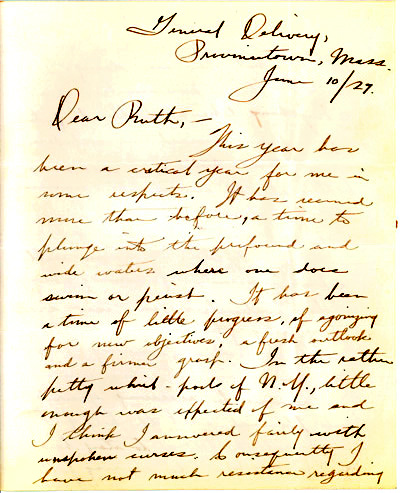 General Delivery,
Provincetown, Mass.
June 10/29.
Dear Ruth, —
This year has
been a critical year for me in
some respects. It has seemed
more than before, a time to
plunge into the profound and
wide waters where one does
swim or perish. It has been
a time of little progress, of agonizing
for new objectives, a fresh outlook
and a firmer grasp. In the rather
petty whirl-pools of N.Y., little
enough was effected of me and
I think I answered fairly with
unspoken curses. Consequently I
have not much resistance regarding